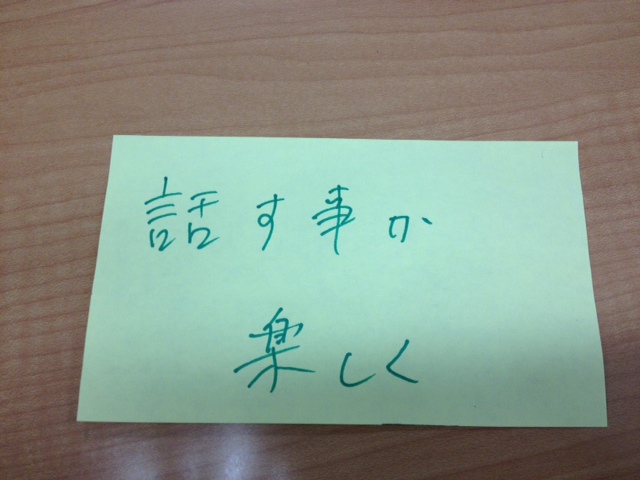 話す事か
楽しく